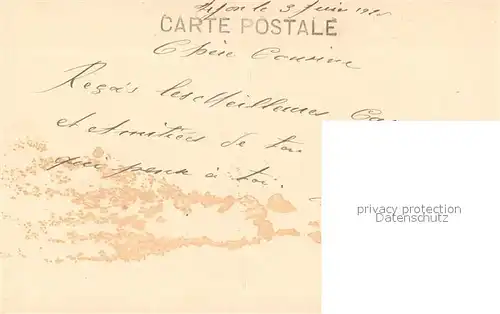 le 3 Juin
CARTE POSTALE
Chère Cousine
Reçois les Meilleures
et Amitiées de ta
qui pense à toi.
privacy protection
Datenschutz